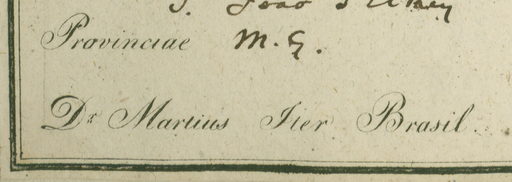 S. João d'El Rey
Provinciae M. G.
Dr Martius Iter Brasil.